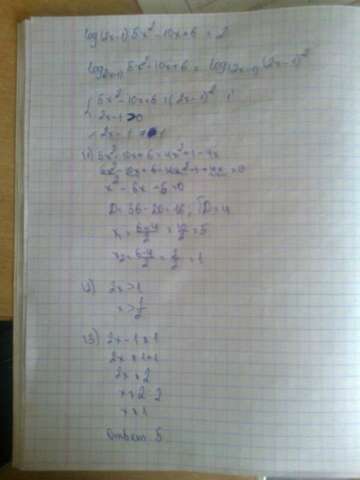 log(2x-1) 5x²-10x+6 = 2
log(2x-1) 5x²-10x+6 = log(2x-1) (2x-1)²
{ 5x²-10x+6=(2x-1)²
2x-1>0
2x-1≠1
(1) 5x²-10x+6=4x²+1-4x
5x²-10x+6-4x²-1+4x=0
x²-6x+5=0
D=36-20=16, √D=4
x₁=(6+4)/2=10/2=5
x₂=(6-4)/2=2/2=1
(2) 2x>1
x>1/2
(3) 2x-1≠1
2x≠1+1
2x≠2
x≠2:2
x≠1
Ответ 5.